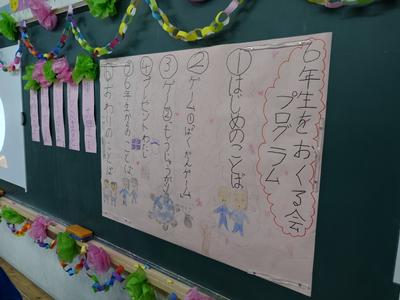 6年生をおくる会
プログラム
①はじめのことば
②ゲーム①、ばくだんゲーム
③ゲーム②、もうじゅうがり
④プレゼントわたし
⑤6年生からのことば
⑥おわりのことば